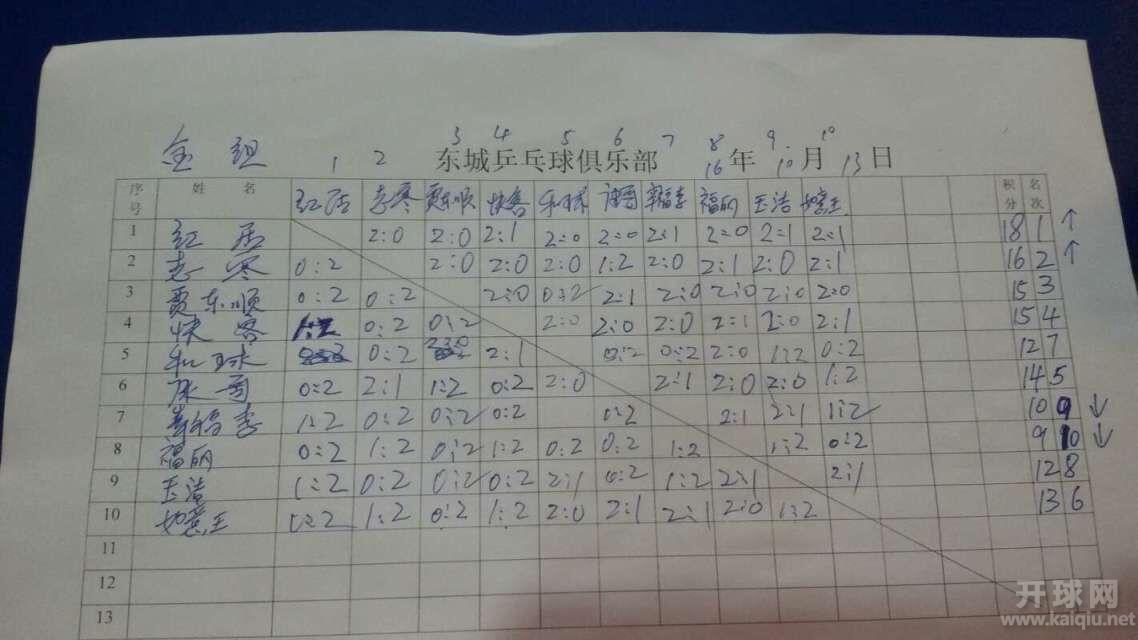 3 4 5 6 7 8 9 10
金组 1 2 东城乒乓球俱乐部 16年10月13日
序号 姓名 红居 志寒 贾东顺 快客 和球 康哥 福丽 玉洁 如意王 积分 名次
1 红居 2:0 2:0 2:1 2:0 2:0 2:1 2:0 2:1 2:1 18 1 ↑
2 志寒 0:2 2:0 2:0 2:0 1:2 2:0 2:1 2:0 2:1 16 2 ↑
3 贾东顺 0:2 0:2 2:0 0:2 2:1 2:0 2:0 2:0 2:0 15 3
4 快客 1:2 0:2 0:2 2:0 2:0 2:0 2:1 2:0 2:1 15 4
5 和球 0:2 2:1 0:2 0:2 2:0 1:2 0:2 12 7
6 康哥 0:2 2:1 1:2 0:2 2:0 2:1 2:0 2:0 1:2 14 5
7 1:2 0:2 0:2 0:2 0:2 2:1 2:1 1:2 10 9 ↓
8 福丽 0:2 1:2 0:2 1:2 0:2 0:2 1:2 1:2 0:2 9 10 ↓
9 玉洁 1:2 0:2 0:2 0:2 2:1 0:2 1:2 2:1 2:1 12 8
10 如意王 1:2 1:2 0:2 1:2 2:0 2:1 2:1 2:0 1:2 13 6
11
12
13
开球网
www.kaiqiu.net